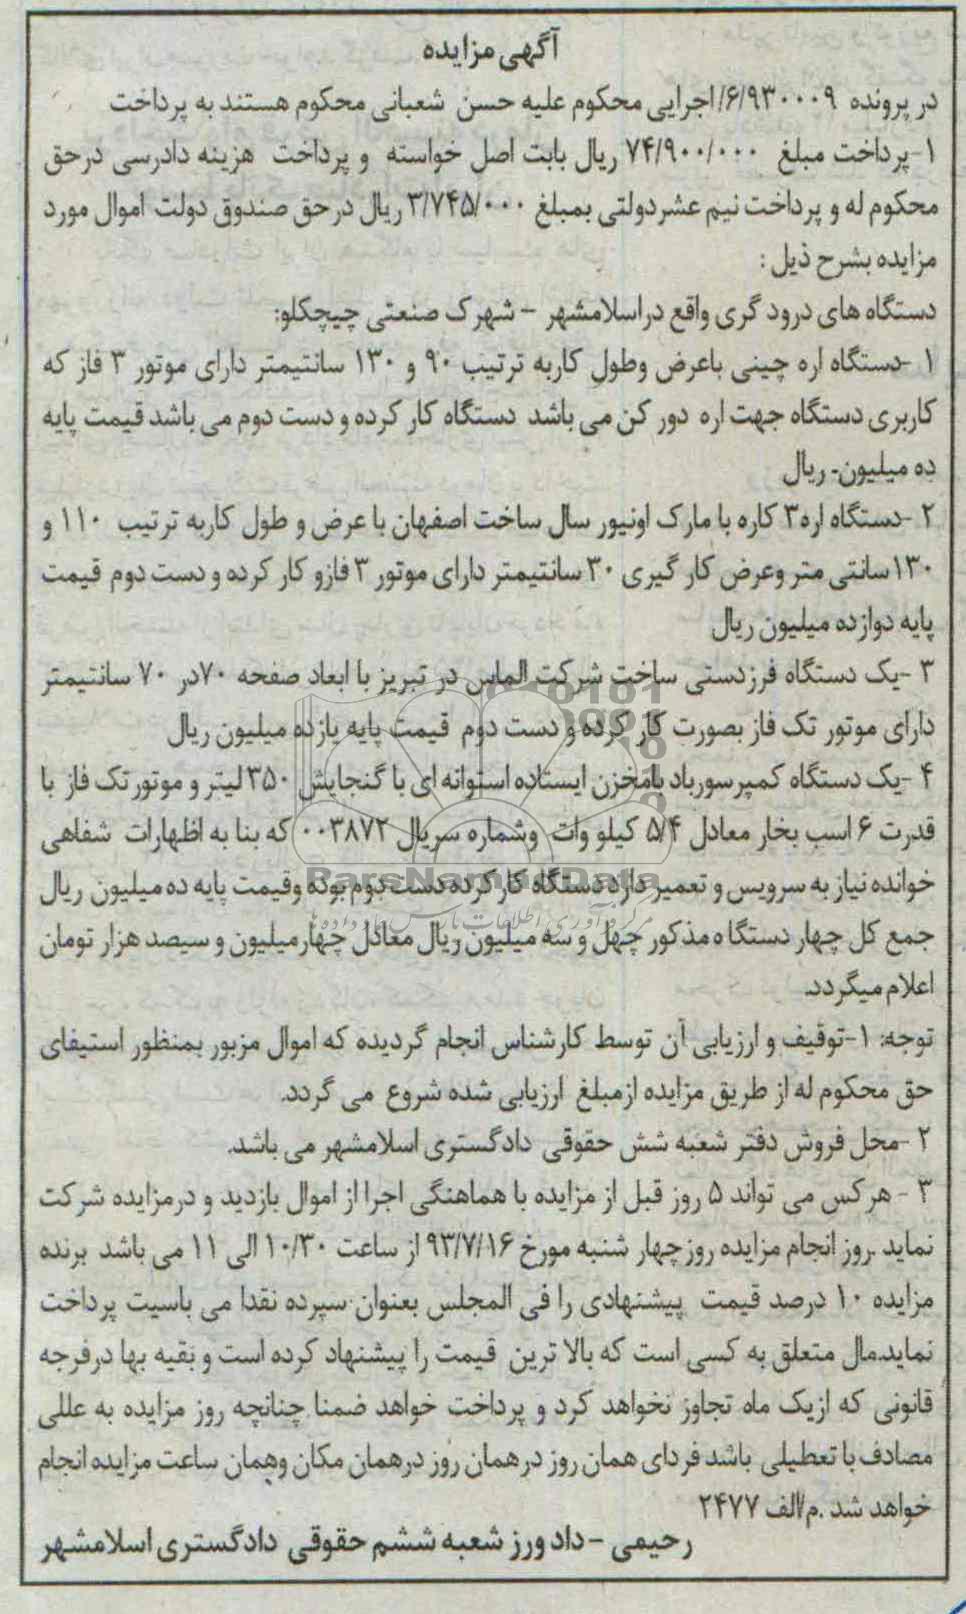 آگهی مزایده
در پرونده ۶/۹۳۰۰۰۹/اجرایی محکوم علیه حسن شعبانی محکوم هستند به پرداخت
۱-پرداخت مبلغ ۷۴/۹۰۰/۰۰۰ ریال بابت اصل خواسته و پرداخت هزینه دادرسی درحق
محکوم له و پرداخت نیم عشردولتی بمبلغ ۳/۷۴۵/۰۰۰ ریال درحق صندوق دولت اموال مورد
مزایده بشرح ذیل :
دستگاه های درود گری واقع دراسلامشهر - شهرک صنعتی چیچکلو:
۱ -دستگاه اره چینی باعرض وطول کاربه ترتیب ۹۰ و ۱۳۰ سانتیمتر دارای موتور ۳ فاز که
کاربری دستگاه جهت اره دور کن می باشد دستگاه کار کرده و دست دوم می باشد قیمت پایه
ده میلیون ریال
۲ -دستگاه اره۳ کاره با مارک اونیور سال ساخت اصفهان با عرض و طول کاربه ترتیب ۱۱۰ و
۱۳۰سانتی متر وعرض کار گیری ۳۰ سانتیمتر دارای موتور ۳ فازو کار کرده و دست دوم قیمت
پایه دوازده میلیون ریال
۳ -یک دستگاه فرزدستی ساخت شرکت الماس در تبریز با ابعاد صفحه ۷۰در ۷۰ سانتیمتر
دارای موتور تک فاز بصورت کار کرده و دست دوم قیمت پایه یازده میلیون ریال
۴ -یک دستگاه کمپرسورباد بامخزن ایستاده استوانه ای با گنجایش ۳۵۰لیتر و موتورتک فاز با
قدرت ۶ اسب بخار معادل ۵/۴ کیلو وات وشماره سریال ۰۰۳۸۷۲ که بنا به اظهارات شفاهی
خوانده نیاز به سرویس و تعمیر دارد دستگاه کار کرده دست دوم بوده وقیمت پایه ده میلیون ریال
ParsNamadData
جمع کل چهار دستگا ه مذکور چهل و سه میلیون ریال معادل چهارمیلیون و سیصد هزار تومان
اعلام میگردد.
توجه: ۱-توقیف و ارزیابی آن توسط کارشناس انجام گردیده که اموال مزبور بمنظور استیفای
حق محکوم له از طریق مزایده ازمبلغ ارزیابی شده شروع می گردد.
۲ -محل فروش دفتر شعبه شش حقوقی دادگستری اسلامشهر می باشد.
۳ - هرکس می تواند ۵ روز قبل از مزایده با هماهنگی اجرا از اموال بازدید و درمزایده شرکت
نماید .روز انجام مزایده روزچهار شنبه مورخ ۹۳/۷/۱۶ از ساعت ۱۰/۳۰ الی ۱۱ می باشد برنده
مزایده ۱۰ درصد قیمت پیشنهادی را فی المجلس بعنوان سپرده نقدا می باسیت پرداخت
نماید.مال متعلق به کسی است که بالا ترین قیمت را پیشنهاد کرده است و بقیه بها درفرجه
قانونی که ازیک ماه تجاوز نخواهد کرد و پرداخت خواهد ضمنا چنانچه روز مزایده به عللی
مصادف با تعطیلی باشد فردای همان روز درهمان روز درهمان مکان وهمان ساعت مزایده انجام
خواهد شد .م/الف ۲۴۷۷
رحیمی - داد ورز شعبه ششم حقوقی دادگستری اسلامشهر